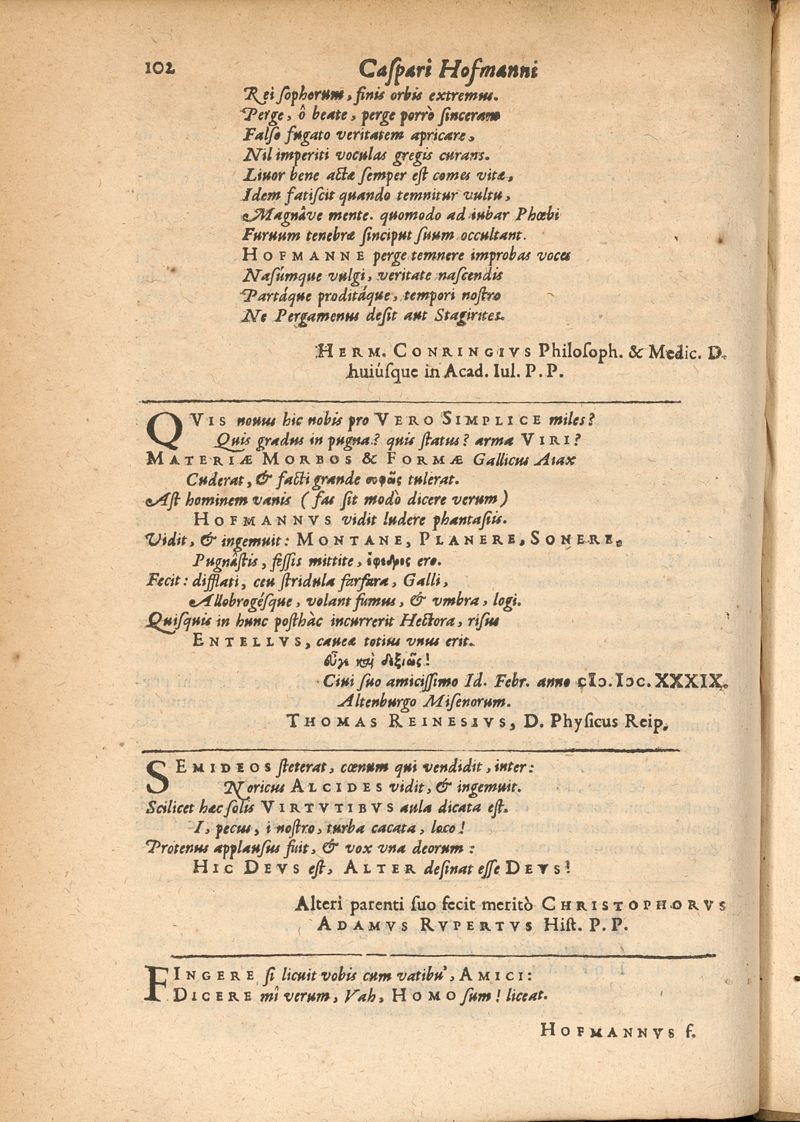 102 Caſpari Hofmanni
Rei ſophorum, finis orbis extremus.
Perge, ô beate, perge porrò ſinceram
Falſo fugato veritatem apricare,
Nil imperiti voculas gregis curans.
Livor bene actæ ſemper eſt comes vitæ,
Idem fatiſcit quando temnitur vultu,
Magnâve mente. quomodo ad iubar Phœbi
Furuum tenebræ ſinciput ſuum occultant.
HOFMANNE perge temnere improbas voces
Naſúmque vulgi, veritate naſcendis
Partáque proditáque, tempori noſtro
Ne Pergamenus deſit aut Stagirites.
HERM. CONRINGIVS Philoſoph. & Medic. D.
huiúſque in Acad. Iul. P. P.
QVIS nouus hic nobis pro VERO SIMPLICE miles?
Quis gradus in pugna? quis ſtatus? arma VIRI?
MATERIÆ MORBOS & FORMÆ Gallicus Aiax
Cuderat, & facti grande σοφῶς tulerat.
Aſt hominem vanis (fas ſit modò dicere verum)
HOFMANNVS vidit ludere phantaſiis.
Vidit, & ingemuit: MONTANE, PLANERE, SONERE,
Pugnáſtis, feſſis mittite, ἔφεδρος ero.
Fecit: difflati, ceu ſtridula farfara, Galli,
Allobrogéſque, volant fumus, & vmbra, logi.
Quiſquis in hunc poſthàc incurrerit Hectora, riſus
ENTELLVS, caueæ totius vnus erit.
καὶ δεξιῶς!
Ciui ſuo amiciſſimo Id. Febr. anno cIɔ. Iɔc. XXXIX.
Altenburgo Miſenorum.
THOMAS REINESIVS, D. Phyſicus Reip.
SEMIDEOS ſteterat, cœnum qui vendidit, inter:
Noricus ALCIDES vidit, & ingemuit.
Scilicet hæc ſolis VIRTVTIBVS aula dicata eſt.
I, pecus, i noſtro, turba cacata, loco!
Protenus applauſus fuit, & vox vna deorum:
HIC DEVS eſt, ALTER deſinat eſſe DEVS!
Alteri parenti ſuo fecit meritò CHRISTOPHORVS
ADAMVS RVPERTVS Hiſt. P. P.
FINGERE ſi licuit vobis cum vatibu', AMICI:
DICERE mî verum, Vah, HOMO ſum! liceat.
HOFMANNVS f.